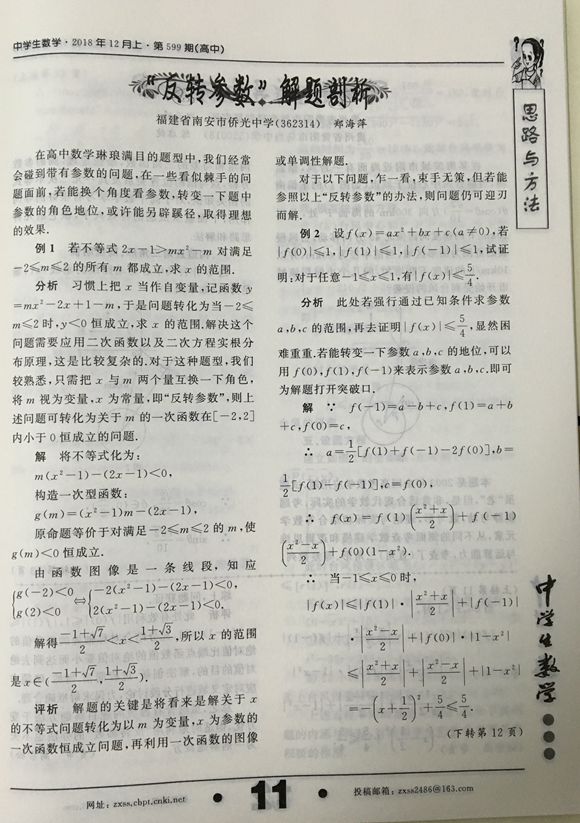 中学生数学·2018年12月上·第599期(高中)
“反转参数”解题剖析
福建省南安市侨光中学(362314) 郑海萍
在高中数学琳琅满目的题型中,我们经常
会碰到带有参数的问题,在一些看似棘手的问
题面前,若能换个角度看参数,转变一下题中
参数的角色地位,或许能另辟蹊径,取得理想
的效果.
例1 若不等式 2x-1>mx²-m 对满足
-2≤m≤2 的所有 m 都成立,求 x 的范围.
分析 习惯上把 x 当作自变量,记函数 y
=mx²-2x+1-m,于是问题转化为当-2≤
m≤2时,y<0 恒成立,求 x 的范围.解决这个
问题需要应用二次函数以及二次方程实根分
布原理,这是比较复杂的.对于这种题型,我们
较熟悉,只需把 x 与 m 两个量互换一下角色,
将 m 视为变量,x 为常量,即“反转参数”,则上
述问题可转化为关于 m 的一次函数在[-2,2]
内小于0恒成立的问题.
解 将不等式化为:
m(x²-1)-(2x-1)<0,
构造一次型函数:
g(m)=(x²-1)m-(2x-1),
原命题等价于对满足-2≤m≤2 的 m,使
g(m)<0 恒成立.
由函数图像是一条线段,知应
{g(-2)<0 ⇔ {-2(x²-1)-(2x-1)<0,
g(2)<0 2(x²-1)-(2x-1)<0,
解得 (-1+√7)/2<x<(1+√3)/2,所以 x 的范围
是 x∈((-1+√7)/2,(1+√3)/2).
评析 解题的关键是将看来是解关于 x
的不等式问题转化为以 m 为变量,x 为参数的
一次函数恒成立问题,再利用一次函数的图像
或单调性解题.
对于以下问题,乍一看,束手无策,但若能
参照以上“反转参数”的办法,则问题仍可迎刃
而解.
例2 设 f(x)=ax²+bx+c(a≠0),若
|f(0)|≤1,|f(1)|≤1,|f(-1)|≤1,试证
明:对于任意-1≤x≤1,有|f(x)|≤5/4.
分析 此处若强行通过已知条件求参数
a,b,c 的范围,再去证明|f(x)|≤5/4,显然困
难重重.若能转变一下参数 a,b,c 的地位,可以
用 f(0),f(1),f(-1)来表示参数 a,b,c.即可
为解题打开突破口.
解 ∵ f(-1)=a-b+c,f(1)=a+b
+c,f(0)=c,
∴ a=1/2[f(1)+f(-1)-2f(0)],b=
1/2[f(1)-f(-1)],c=f(0),
∴ f(x)=f(1)((x²+x)/2)+f(-1)
((x²-x)/2)+f(0)(1-x²).
∴ 当-1≤x≤0时,
|f(x)|≤|f(1)|·|(x²+x)/2|+|f(-1)|
·|(x²-x)/2|+|f(0)|·|1-x²|
≤|(x²+x)/2|+|(x²-x)/2|+|1-x²|
=-(x+1/2)²+5/4≤5/4.
(下转第12页)
思路与方法
中学生数学
网址:zxss.cbpt.cnki.net
11
投稿邮箱:zxss2486@163.com